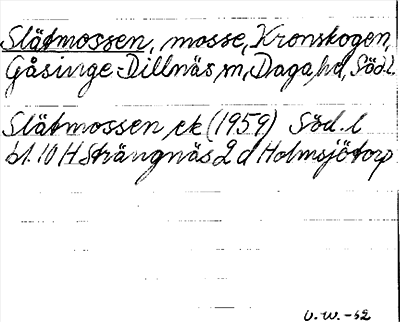 Slätmossen, mosse, Kronskogen,
Gåsinge-Dillnäs, m, Daga, hd, Söd.l.
Slätmossen, ek (1959) Söd.l
bl. 10 H Strängnäs 2 d Holmsjötorp
U.W. -62